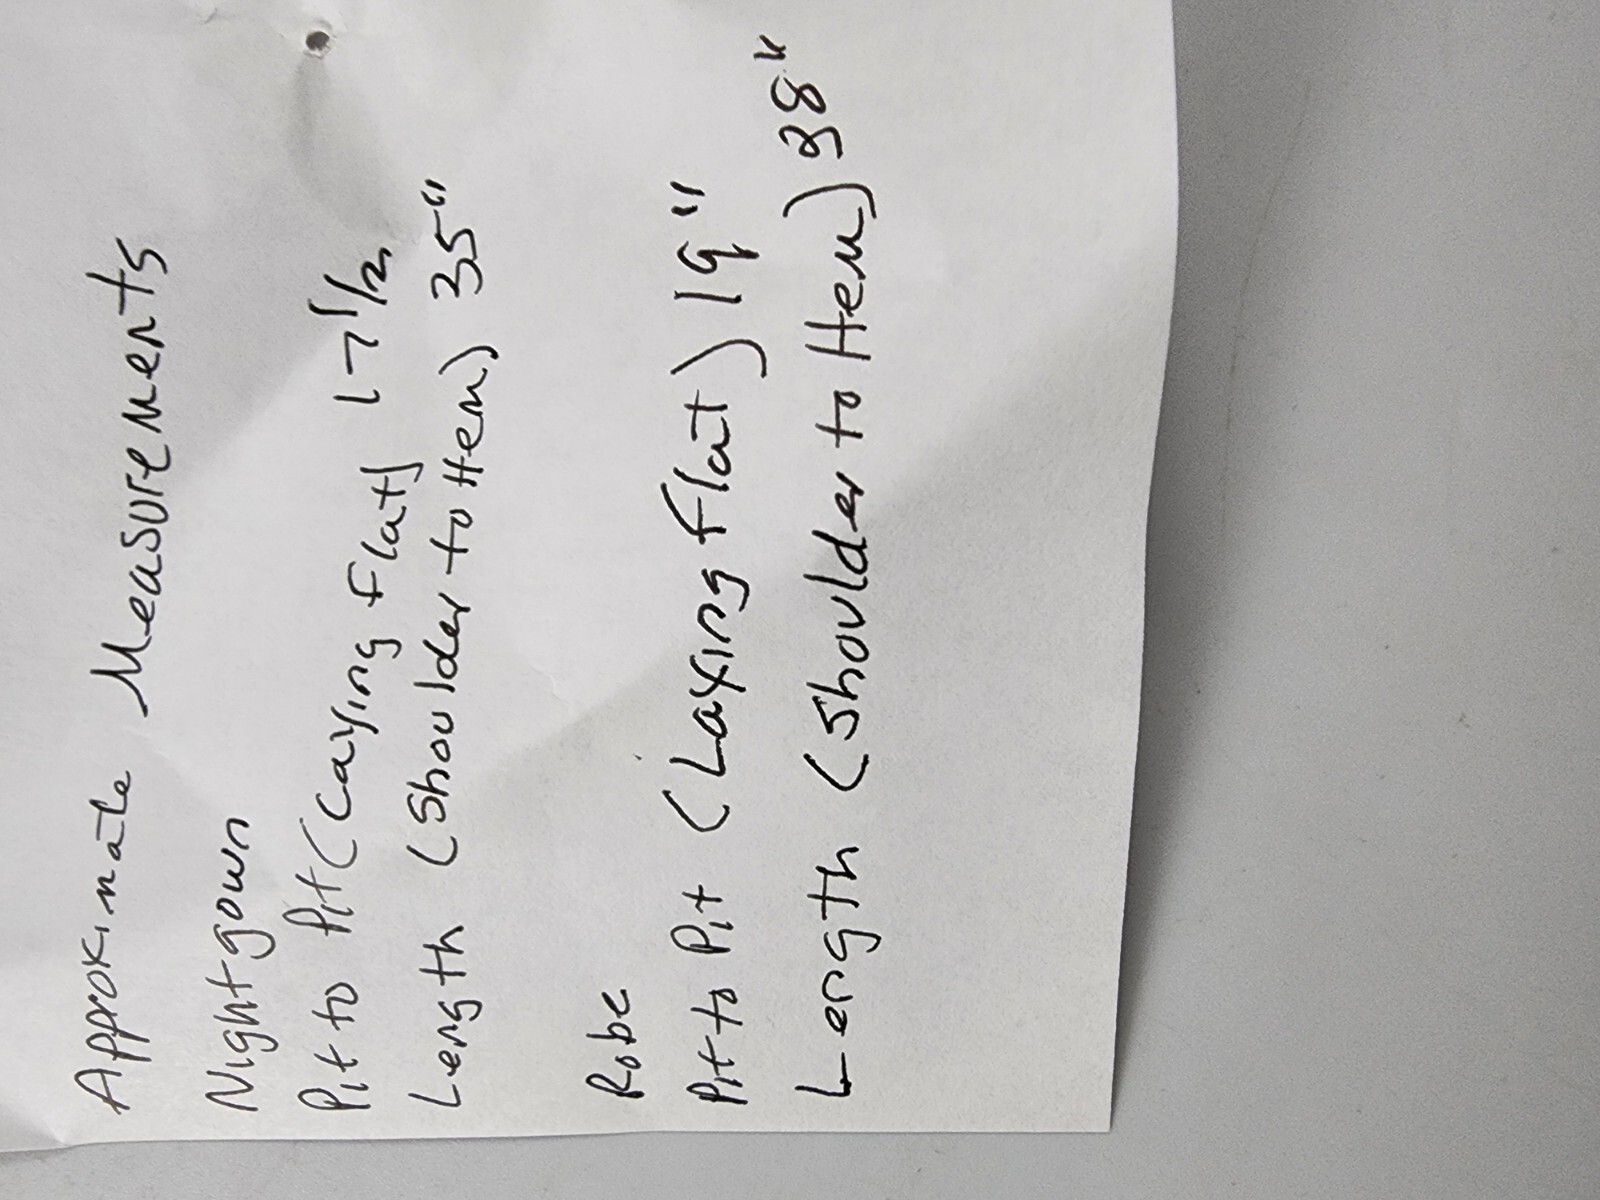 Approximate Measurements
Nightgown
Pit to Pit (Laying flat) 17 1/2
Length (Shoulder to Hem) 35"
Robe
Pit to Pit (Laying flat) 19"
Length (Shoulder to Hem) 38"